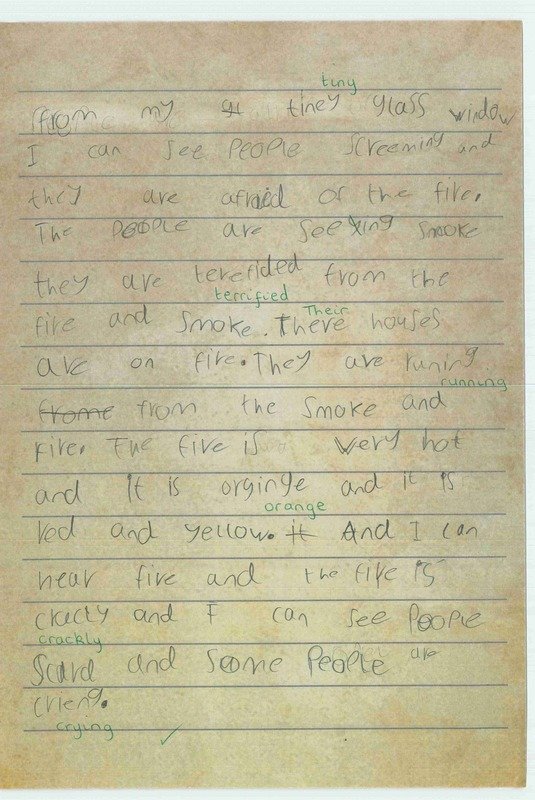 tiny
from my tiney glass window
I can see People screeming and
they are afraid of the fire.
The PEOPLE are seeing smoke
they are tererided from the
terrified
fire and smoke. There houses
Their
are on fire. They are runing
running
frome from the smoke and
Fire. The fire is very hot
and it is orginge and it is
orange
red and yellow. it And I can
hear fire and the fire is
cractly and I can see People
crackly
Scard and some People are
crieng.
crying